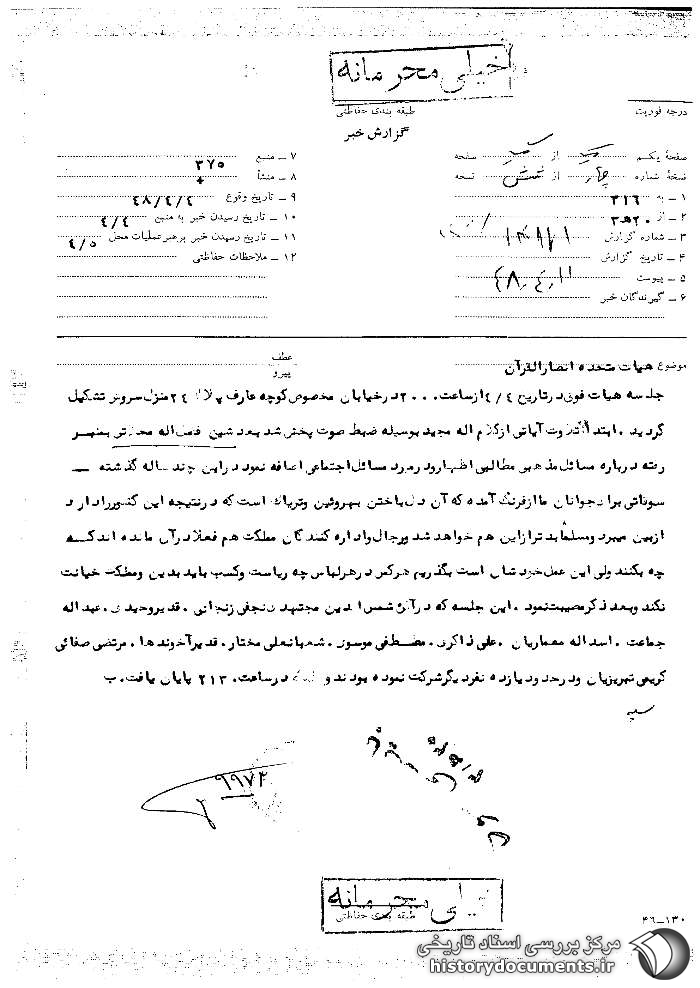 خیلی محرمانه
طبقه بندی حفاظتی
درجه فوریت
گزارش خبر
صفحه یکم از صفحه
نسخه شماره چهار از شش نسخه
۱ ـ به ۳۱۶
۲ ـ از ۲۰ه۳
۳ ـ شماره گزارش
۴ ـ تاریخ گزارش
۵ ـ پیوست
۶ ـ گیرندگان خبر
۷ ـ منبع ۳۷۵
۸ ـ منشأ
۹ ـ تاریخ وقوع ۴۸/۴/۴
۱۰ ـ تاریخ رسیدن خبر به منبع ۴/۴
۱۱ ـ تاریخ رسیدن خبر برهبرعملیات محل ۴/۵
۱۲ ـ ملاحظات حفاظتی
موضوع هیات متحده انصارالقرآن
عطف
پیرو
جلسه هیات فوق در تاریخ ۴/۴ ازساعت ۲۰۰۰ درخیابان مخصوص کوچه عارف پلاک ۲۴ منزل سروش تشکیل
گردید . ابتدا تلاوت آیاتی از کلام اله مجید بوسیله ضبط صوت پخش شد بعد شیخ فضل اله محلاتی بمنبر
رفته درباره مسائل مذهبی مطالبی اظهار و در مورد مسائل اجتماعی اضافه نمود در این چند ساله گذشته ـ
سوغاتی برای جوانان ما از فرنگ آمده که آن دل باختن بهروئین وتریاک است که در نتیجه این کشور را دارد
از بین میبرد ومسلماً بدتر از این هم خواهد شد ورجال واداره کنندگان مملکت هم فعلا در آن مانده اند کـه
چه بکنند ولی این عمل خود شان است بگذریم هرکس در هر لباس چه ریاست وکسب باید بدین ومملکت خیانت
نکند وبعد ذکر مصیبت نمود . این جلسه که در آن شمس الدین مجتهدی نجفی زنجانی . قدیر وحیدی . عبداله
جماعت . اسداله معماریان . علی ذاکری . مصطفی موسوی . شعبانعلی مختار . قدیر آخوندها . مرتضی صفائی
کریمی تبریزیان ودر حدود یازده نفر دیگر شرکت نموده بودند و در ساعت ۲۱۳۰ پایان یافت. ب
۹۹۷۲
خیلی محرمانه
طبقه بندی حفاظتی
۴۶ـ۱۳۰
مرکز بررسی اسناد تاریخی
historydocuments.ir